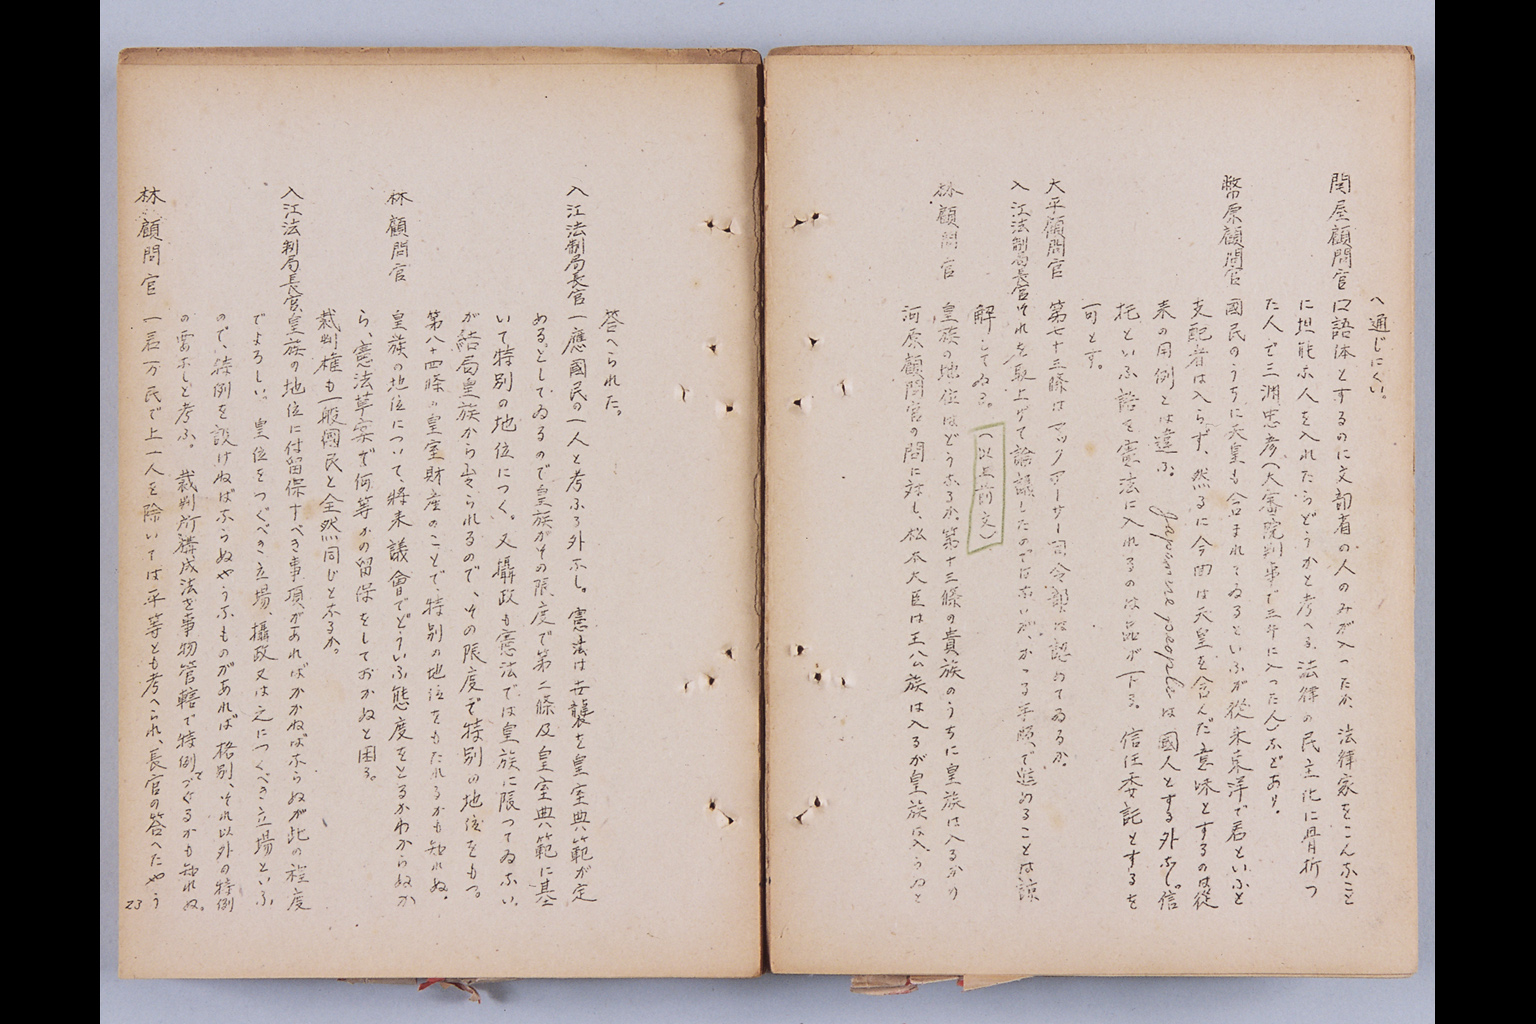 へ通じにくい。
関屋顧問官 口語体とするのに文部省の人のみが入ったか、法律家をこんなこと
に堪能な人を入れたらどうかと考へる、法律の民主化に骨折つ
た人で三淵忠彦(大審院判事で三井に入った人)などあり。
幣原顧問官 國民のうちに天皇も含まれてゐるといふが従来東洋で君といふと
支配者は入らず、然るに今囬は天皇を含んだ意味とするのは従
来の用例とは違ふ。 Japanese peopleは國人とする外なし。信
托といふ語を憲法に入れるのは品が下る。信任委託とするを
可とす。
大平顧問官 第七十三條はマックアーサー司令部は認めてゐるか。
入江法制局長官 それを取上げて論議したのではないが、かゝる手順で進めることは諒
解してゐる。(以上前文)
林顧問官 皇族の地位はどうなるか、第十三條の貴族のうちに皇族は入るか
河原顧問官の問に対し、松本大臣は王公族は入るが皇族は入らぬと
答へられた。
入江法制局長官 一應國民の一人と考ふる外なし。憲法は世襲を皇室典範が定
めるとしてゐるので皇族がその限度で第二條及皇室典範に基
いて特別の地位につく。又攝政も憲法では皇族に限つてゐない
が結局皇族から出られるので、その限度で特別の地位をもつ。
第八十四條は皇室財産のことで、特別の地位をもたれるかも知れぬ。
林顧問官 皇族の地位について、將来議會でどういふ態度をとるかわからぬか
ら、憲法草案で何等かの留保をしておかぬと困る。
裁判権も一般國民と全然同じとなるか。
入江法制局長官 皇族の地位に付留保すべき事項があればかかねばならぬが此の程度
でよろしい。皇位をつぐべき立場、攝政又は之につくべき立場といふ
ので、特例を設けねばならぬやうなものがあれば格別、それ以外の特例
の要なしと考ふ。裁判所構成法を事物管轄で特例でてくるかも知れぬ。
林顧問官 一君万民で上一人を除いては平等とも考へられ、長官の答へたやう
23